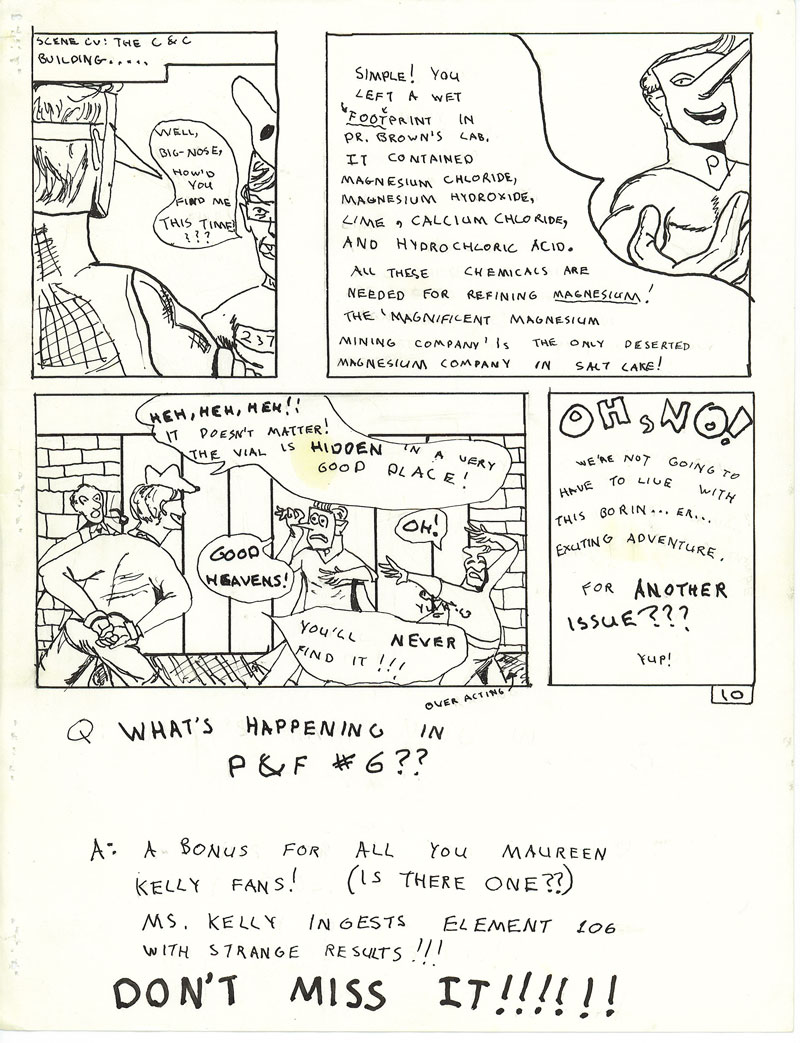 SCENE CV: THE C & C
BUILDING.....
WELL,
BIG-NOSE,
HOW'D
YOU
FIND ME
THIS TIME?
???
237
SIMPLE! YOU
LEFT A WET
"FOOTPRINT IN
DR. BROWN'S LAB.
IT CONTAINED
MAGNESIUM CHLORIDE,
MAGNESIUM HYDROXIDE,
LIME, CALCIUM CHLORIDE,
AND HYDROCHLORIC ACID.
ALL THESE CHEMICALS ARE
NEEDED FOR REFINING MAGNESIUM!
THE 'MAGNIFICENT MAGNESIUM
MINING COMPANY' IS THE ONLY DESERTED
MAGNESIUM COMPANY IN SALT LAKE!
P
HEH, HEH, HEH!!
IT DOESN'T MATTER!
THE VIAL IS HIDDEN IN A VERY
GOOD PLACE!
GOOD
HEAVENS!
OH!
YOU'LL NEVER
FIND IT!!!
OVER ACTING
OH, NO!
WE'RE NOT GOING TO
HAVE TO LIVE WITH
THIS BORIN... ER...
EXCITING ADVENTURE,
FOR ANOTHER
ISSUE???
YUP!
10
Q WHAT'S HAPPENING IN
P&F #6??
A: A BONUS FOR ALL YOU MAUREEN
KELLY FANS! (IS THERE ONE??)
MS. KELLY INGESTS ELEMENT 106
WITH STRANGE RESULTS!!!
DON'T MISS IT!!!!!!